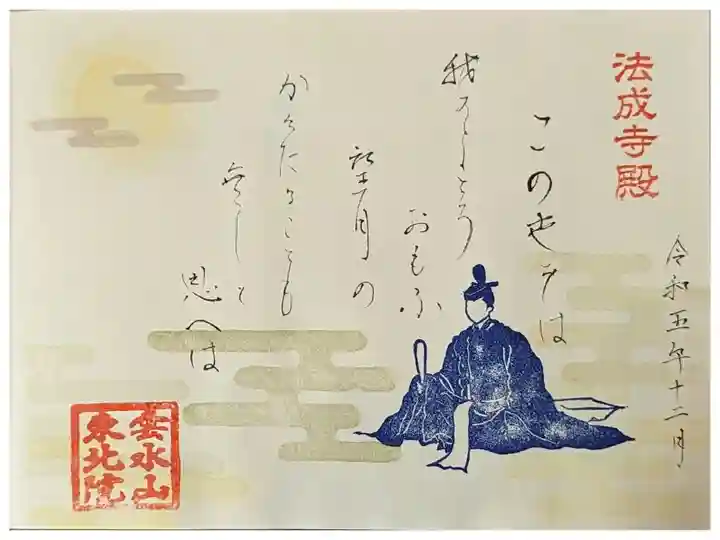 法成寺殿
令和五年十二月
この世をは
我よとそ
おもふ
望月の
かけたることも
無しと
思へは
雲水山
東北院